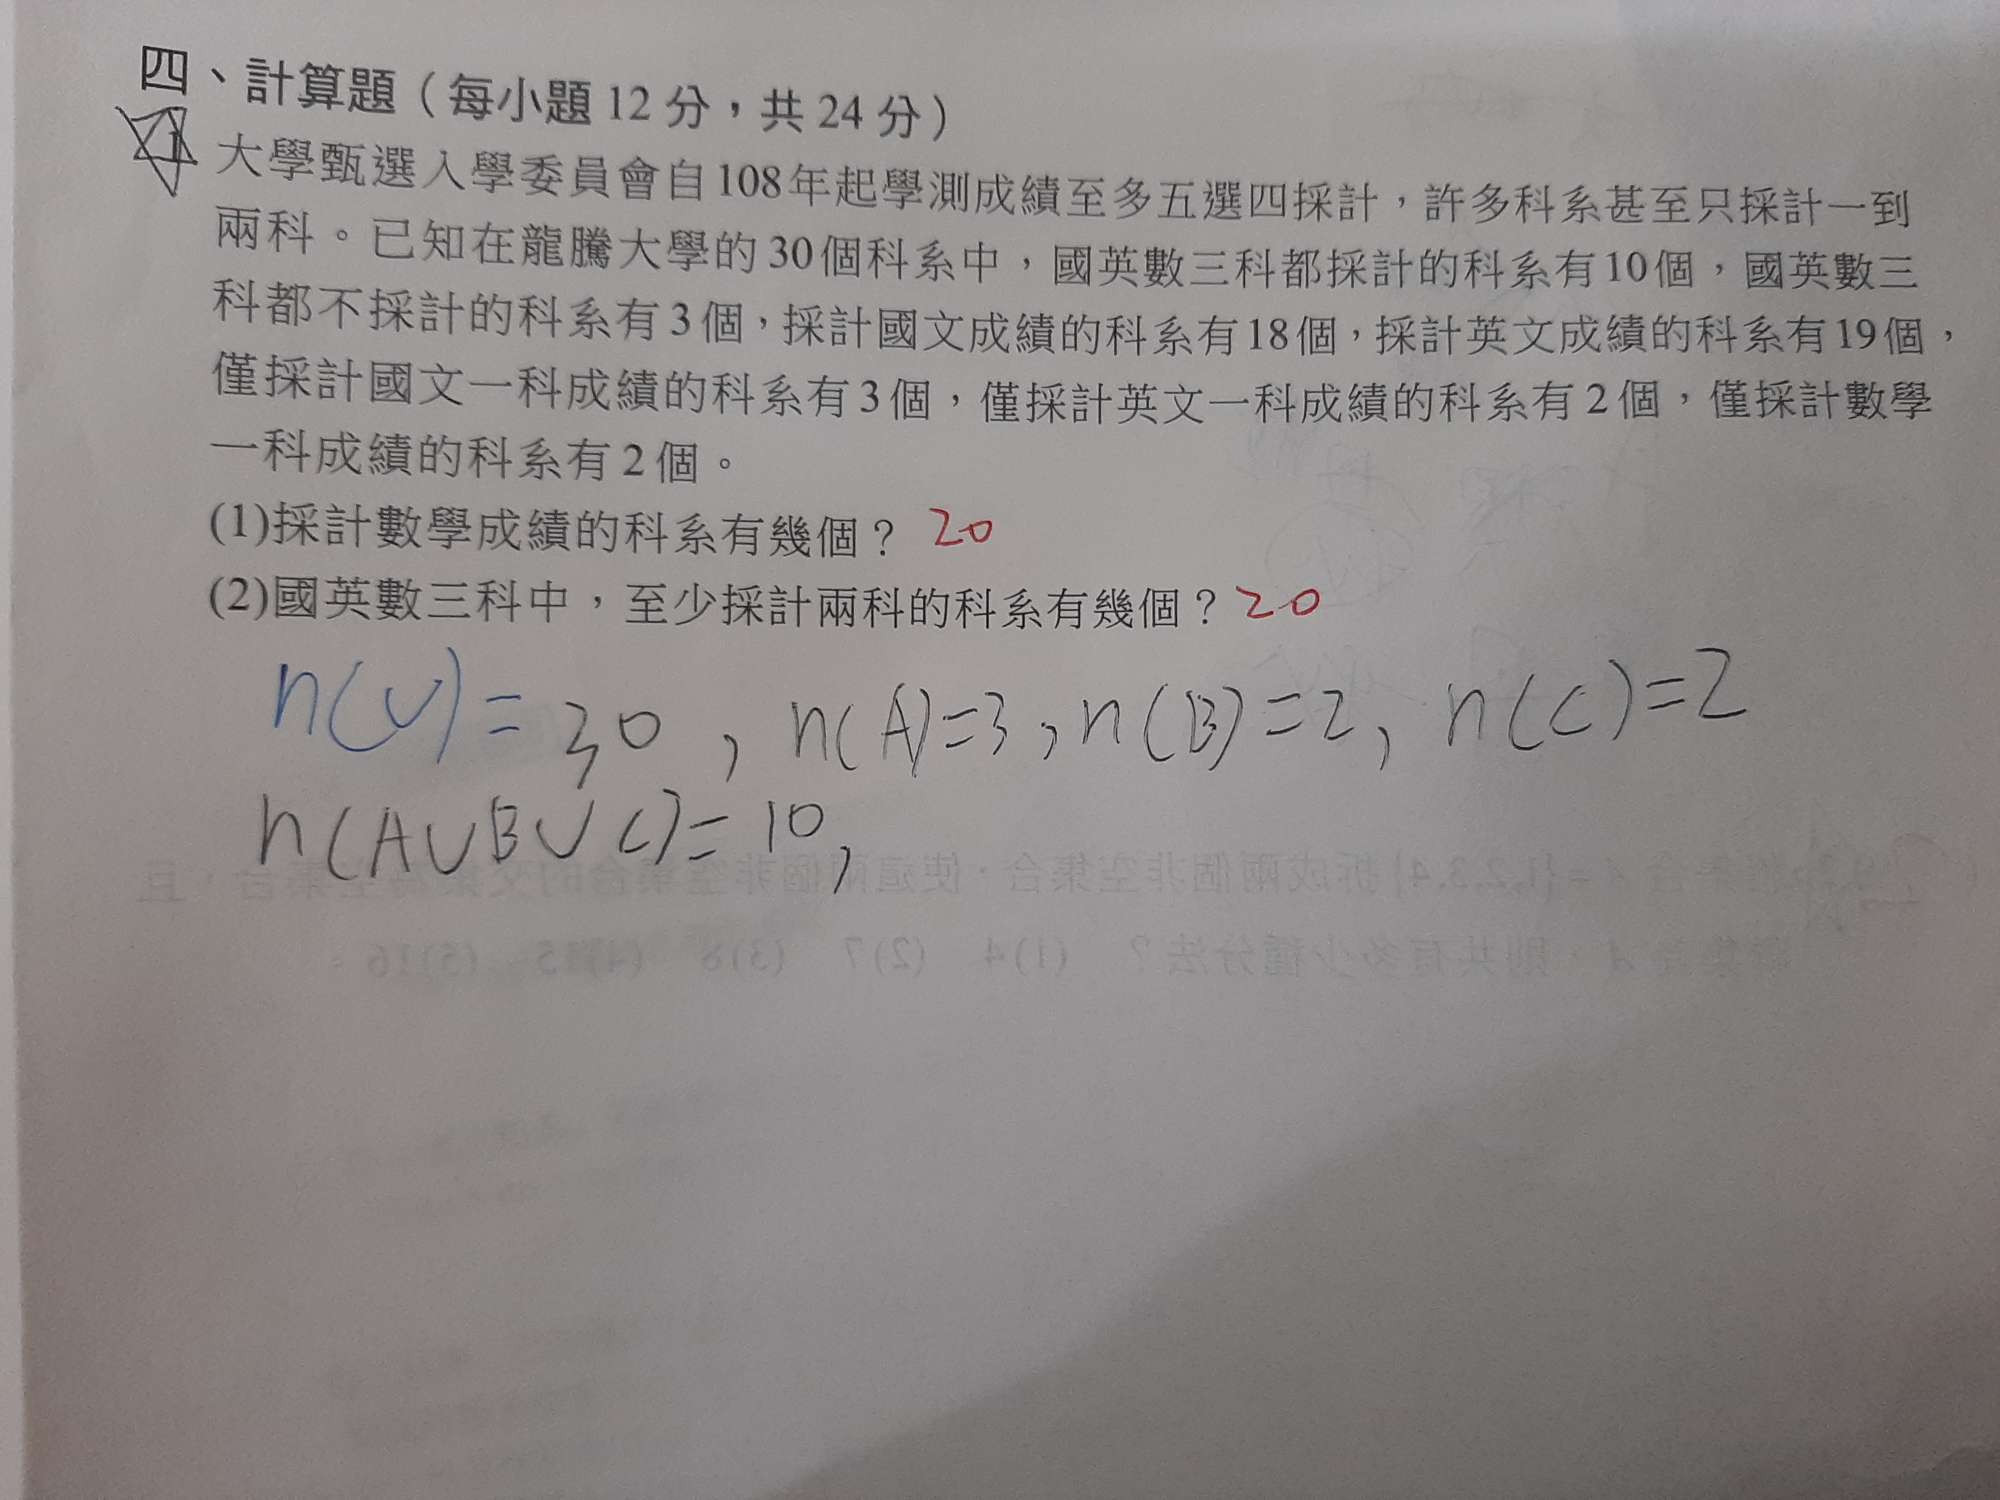 四、計算題（每小題 12 分，共 24 分）
1 大學甄選入學委員會自108年起學測成績至多五選四採計，許多科系甚至只採計一到
兩科。已知在龍騰大學的30個科系中，國英數三科都採計的科系有10個，國英數三
科都不採計的科系有3個，採計國文成績的科系有18個，採計英文成績的科系有19個，
僅採計國文一科成績的科系有3個，僅採計英文一科成績的科系有2個，僅採計數學
一科成績的科系有2個。
(1)採計數學成績的科系有幾個？ 20
(2)國英數三科中，至少採計兩科的科系有幾個？ 20
n(U)=30, n(A)=3, n(B)=2, n(C)=2
n(A∪B∪C)=10,